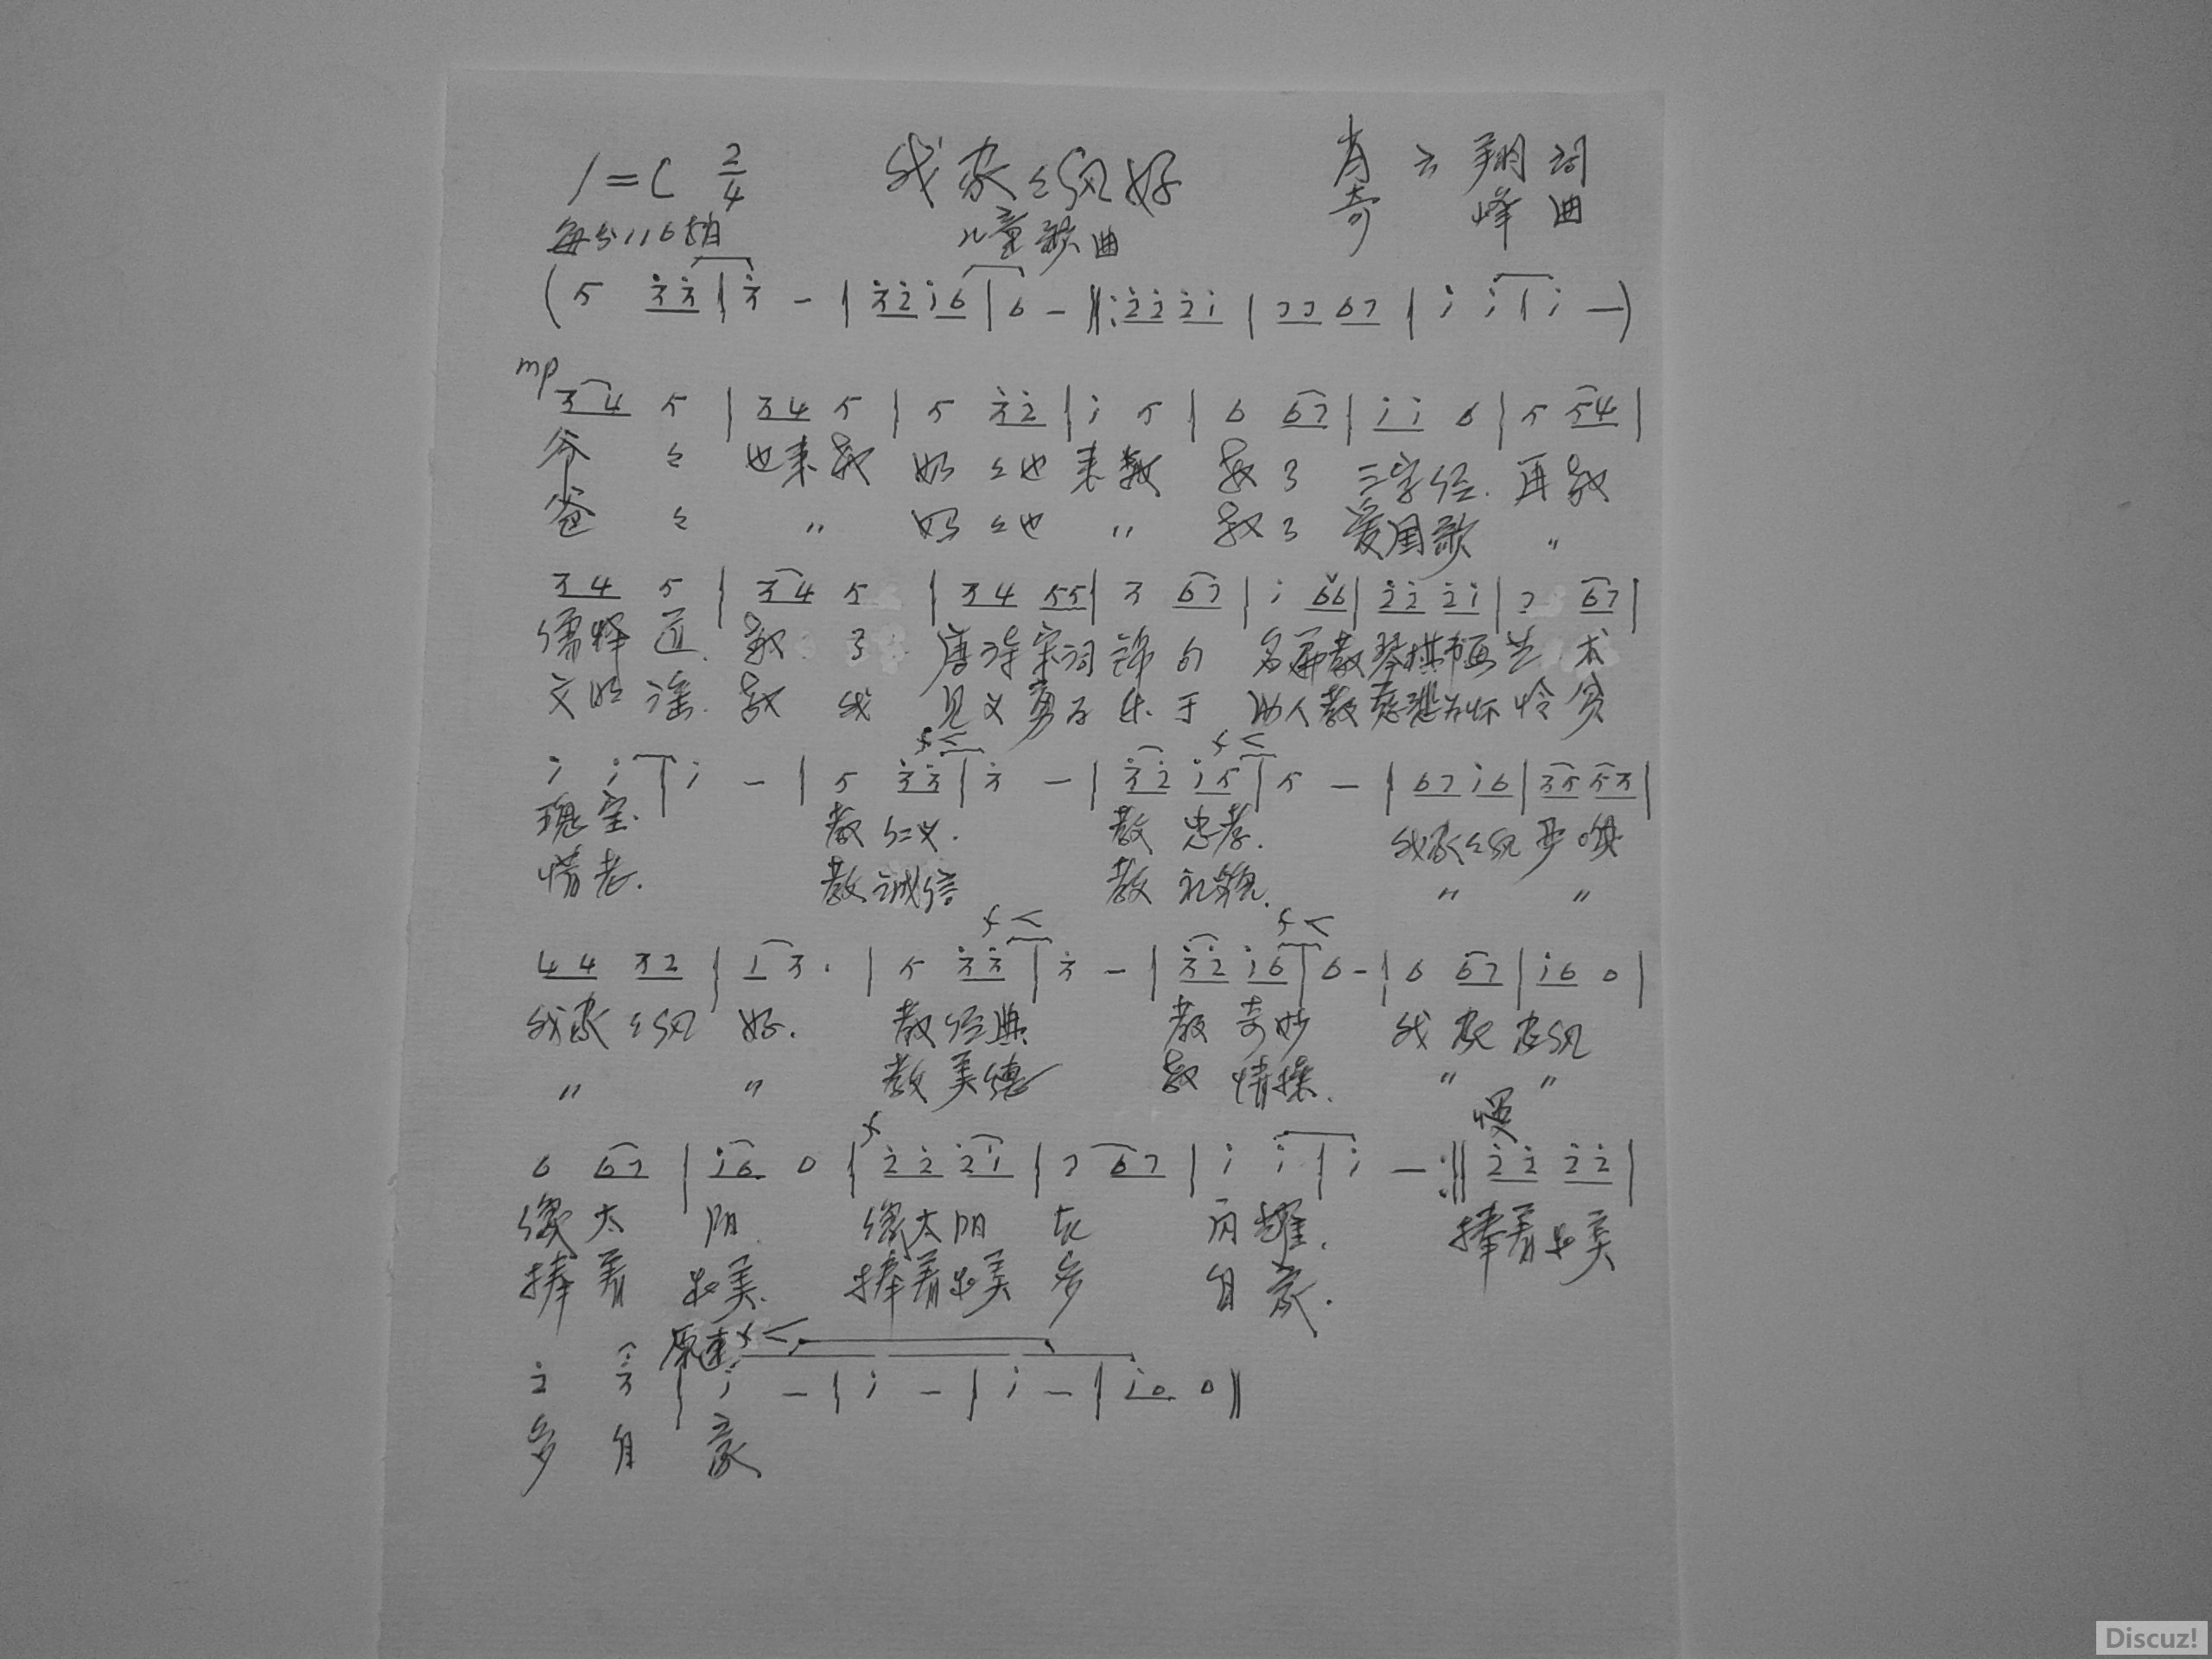 1=C 2/4 我家家风好 肖云翔词
每分116拍 儿童歌曲 奇峰曲
(5 3̇3̇|3̇ -|3̇2̇ 1̇6|6 -‖:2̇2̇ 2̇1̇|77 67|1̇ 1̇|1̇ -)
mp
34 5|34 5|5 3̇2̇|1̇ 5|6 67|1̇1̇ 6|5 54|
爷 々 也来教 奶々也来教 教了 三字经. 再教
爸 々 〃 妈々也 〃 教了 爱国歌 〃
34 5|34 5|34 55|3 67|1̇ 66|2̇2̇ 2̇1̇|7 67|
儒释道. 教了 唐诗宋词诗句 名篇教琴棋书画艺术
文明谣. 教我 见义勇为乐于 助人教慈悲为怀怜贫
f< f<
1̇ 1̇|1̇ -|5 3̇3̇|3̇ -|3̇2̇ 1̇5|5 -|67 1̇6|35 53|
瑰宝. 教仁义. 教忠孝. 我家々风
惜老. 教诚信 教礼貌. 〃 〃
f< f<
44 32|1 3.|5 3̇3̇|3̇ -|3̇2̇ 1̇6|6 -|6 67|1̇6 0|
我家々风 好. 教经典 教奇妙 我家家风
〃 〃 教美德 教情操. 〃 〃
f 慢
6 67|1̇6 0|2̇2̇ 2̇1̇|7 67|1̇ 1̇|1̇ -:‖2̇2̇ 2̇2̇|
像太 阳. 像太阳 在 闪耀. 捧着
捧着 美. 捧着 美 多 自豪.
原速 f<
2̇ 3̇|1̇ -|1̇ -|1̇ -|1̇0 0‖
多 自 豪
Discuz!